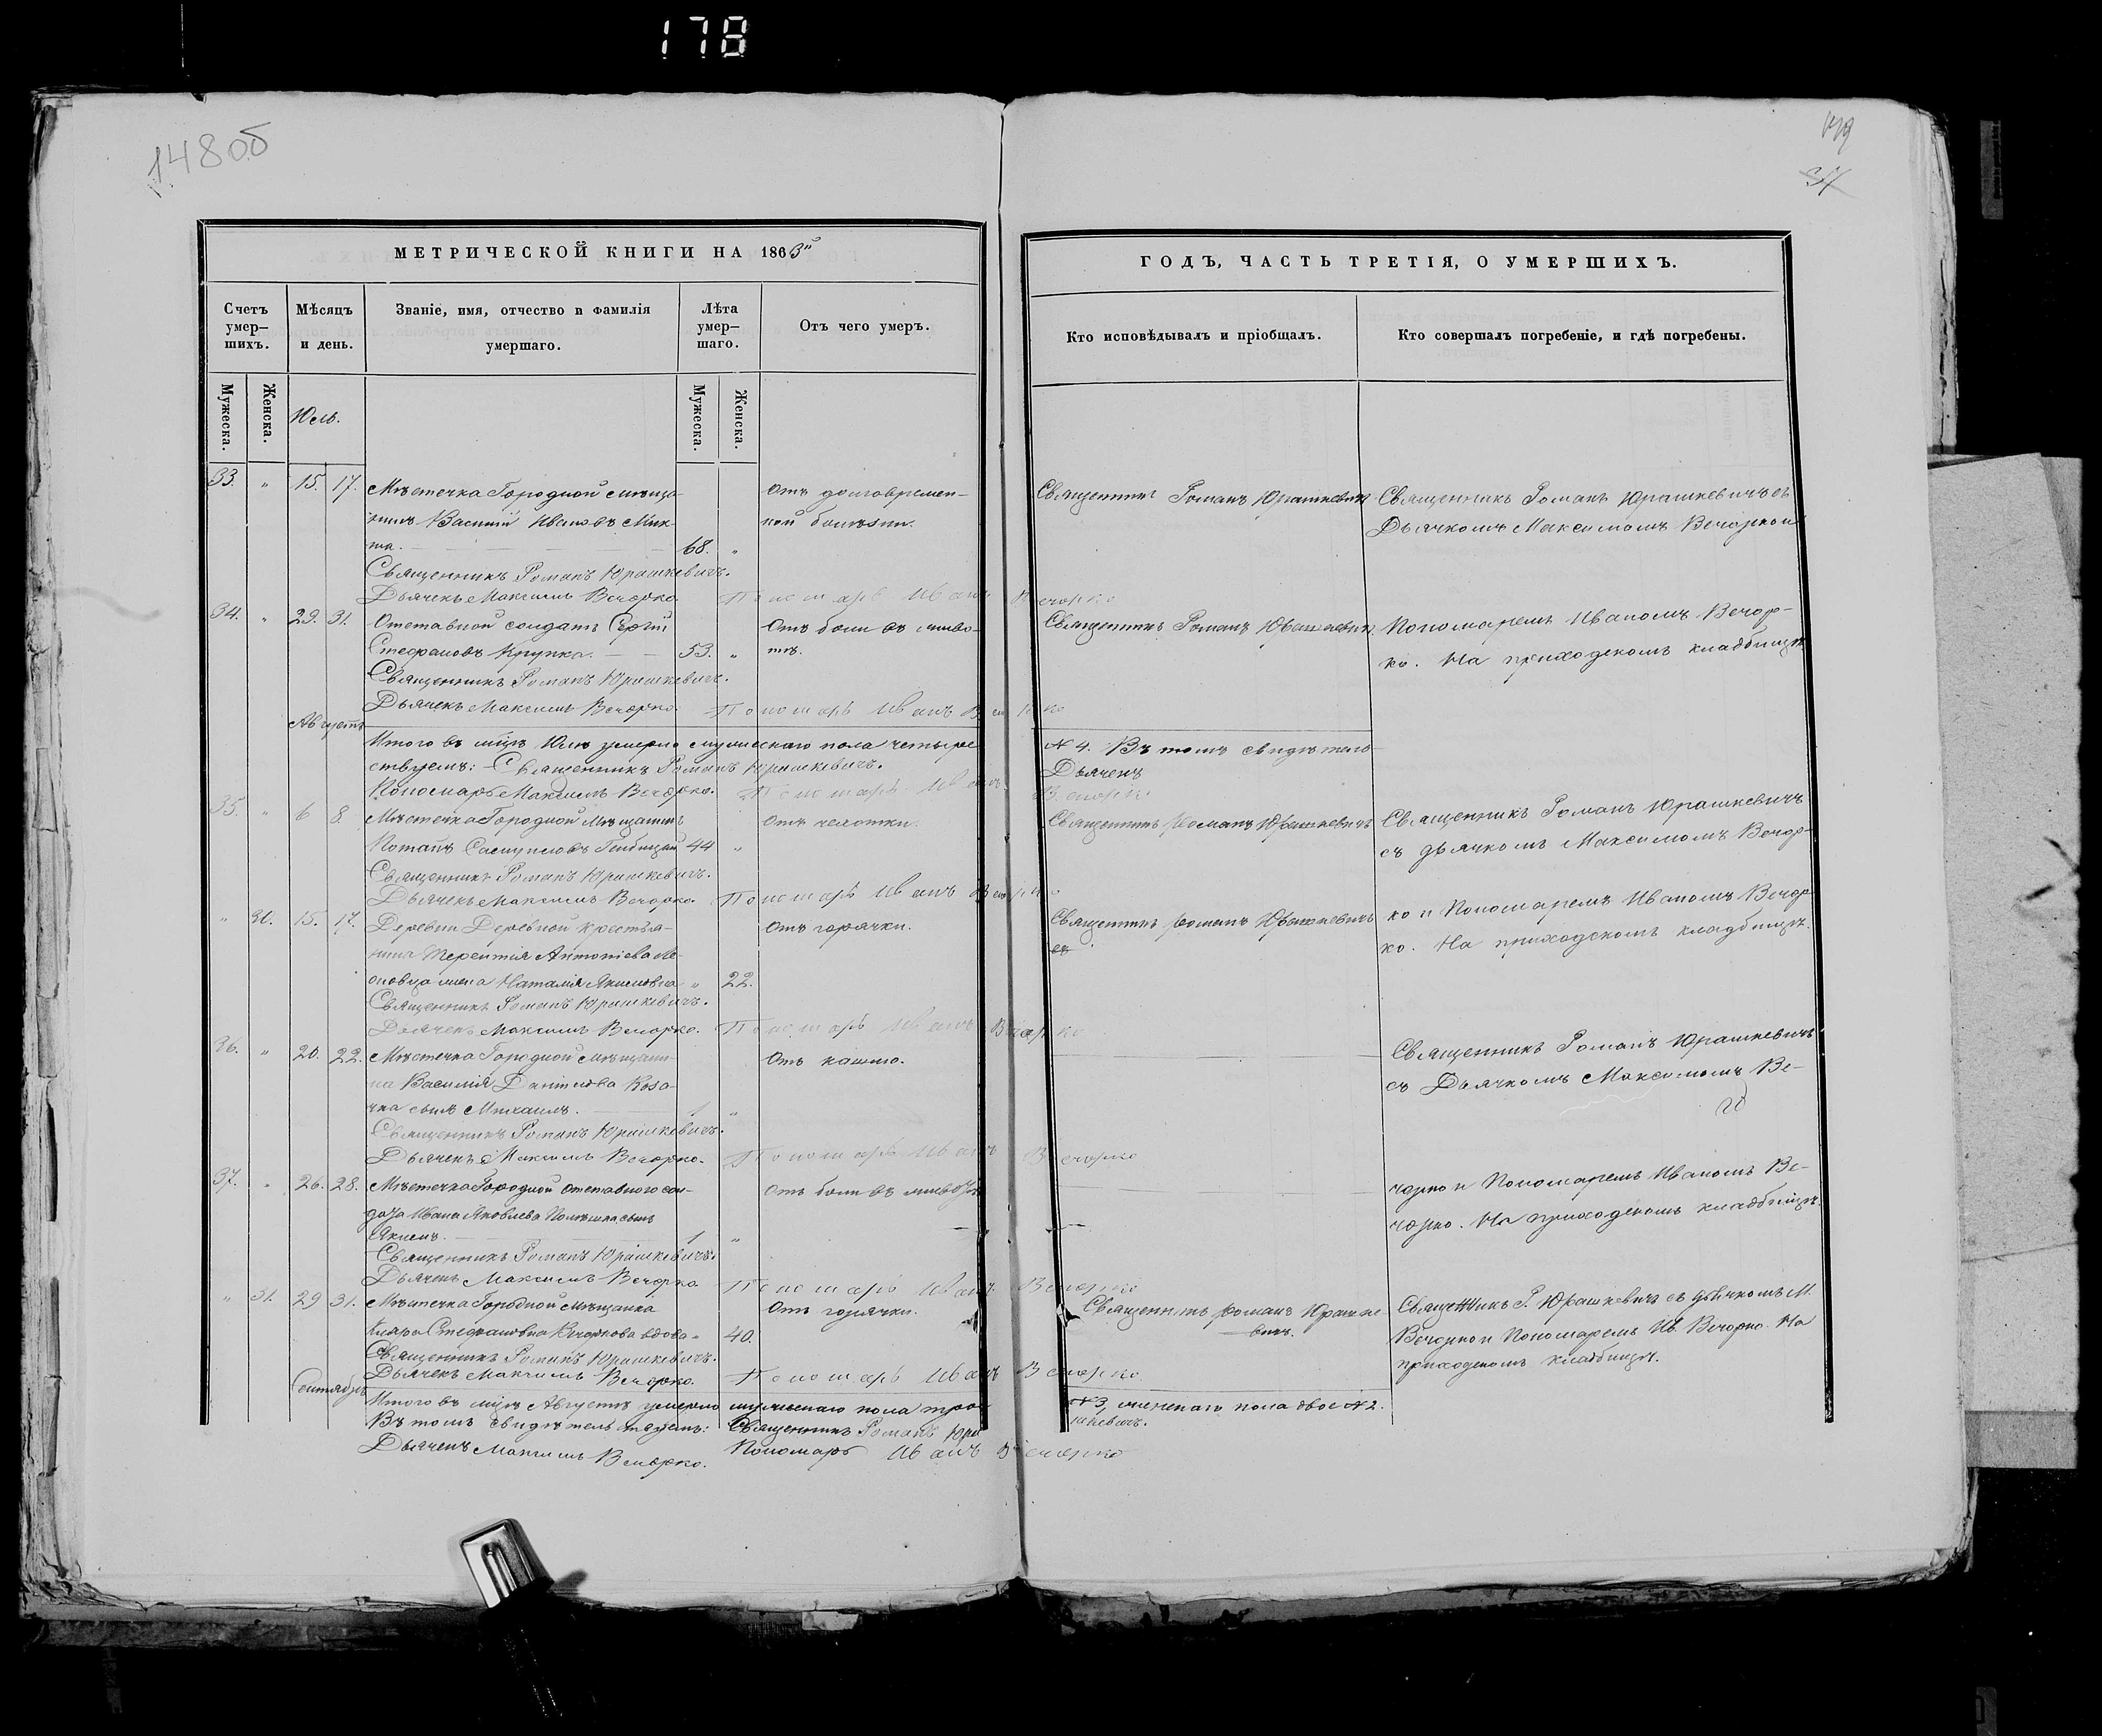 178
148об
149
37
МЕТРИЧЕСКОЙ КНИГИ НА 1863й
Счетъ умер-
шихъ.
Мѣсяцъ
и день.
Званіе, имя, отчество и фамилія
умершаго.
Лѣта
умер-
шаго.
Отъ чего умеръ.
Мужеска.
Женска.
Юль.
Мужеска.
Женска.
33. " 15. 17. Мѣстечка Городной мѣща- Отъ долговремен-
нинъ Василій Ивановъ Мик- ной болѣзни.
та. 68. "
Священникъ Романъ Юрашкевичъ.
Дьячекъ Максимъ Вечорко Пономарь Иванъ Вечорко
34. " 29. 31. Отставной солдатъ Сергій Отъ боли въ живо-
Стефановъ Крупка. 53. " тѣ.
Священникъ Романъ Юрашкевичъ.
Дьячекъ Максимъ Вечорко. Пономарь Иванъ Вечорко
Августъ
Итого въ мцѣ Юлѣ умерло мужескаго пола четыре
ствуемъ: Священникъ Романъ Юрашкевичъ.
Пономарь Максимъ Вечорко. Пономарь Иванъ Вечорко
35. " 6 8. Мѣстечка Городной Мѣщанинъ Отъ чехотки.
Потапъ 44 "
Священникъ Романъ Юрашкевичъ.
Дьячекъ Максимъ Вечорко. Пономарь Иванъ Вечорко
" 15. 17. Деревни Деревной крестья- Отъ горячки.
нина Терентія Антоніева Ле-
оновца жена Наталія Якимовна " 22.
Священникъ Романъ Юрашкевичъ.
Дьячекъ Максимъ Вечорко. Пономарь Иванъ Вечорко
36. " 20. 22. Мѣстечка Городной Мѣщани- Отъ кашлю.
на Василія Данілова Коза-
чка сынъ Михаилъ. 1 "
Священникъ Романъ Юрашкевичъ.
Дьячекъ Максимъ Вечорко. Пономарь Иванъ Вечорко
37. " 26. 28. Мѣстечка Городной отставного сол- Отъ боли въ животѣ
дата Ивана Яковлева сынъ
Якимъ. 1 "
Священникъ Романъ Юрашкевичъ.
Дьячекъ Максимъ Вечорко Пономарь Иванъ Вечорко
" 31. 29 31. Мѣстечка Городной Мѣщанка Отъ горячки.
Стефановна Вечоркова вдова " 40.
Священникъ Романъ Юрашкевичъ.
Дьячекъ Максимъ Вечорко. Пономарь Иванъ Вечорко
Сентябрь
Итого въ мцѣ Августѣ умерло мужескаго пола трое
Въ томъ свидѣтельствуемъ: Священникъ Романъ Юра
Дьячекъ Максимъ Вечорко. Пономарь Иванъ Вечорко
ГОДЪ, ЧАСТЬ ТРЕТІЯ, О УМЕРШИХЪ.
Кто исповѣдывалъ и пріобщалъ.
Кто совершалъ погребеніе, и гдѣ погребены.
Священникъ Романъ Юрашкевичъ Священникъ Романъ Юрашкевичъ съ
Дьячкомъ Максимомъ Вечорко и
Священникъ Романъ Юрашкевичъ. Пономаремъ Иваномъ Вечор-
ко. На приходскомъ кладбищѣ
№ 4. Въ томъ свидѣтель-
Дьячекъ
Священникъ Романъ Юрашкевичъ Священникъ Романъ Юрашкевичъ
съ дьячкомъ Максимомъ Вечор-
Священникъ Романъ Юрашкевичъ ко и Пономаремъ Иваномъ Вечор-
съ ко. На приходскомъ кладбищѣ.
Священникъ Романъ Юрашкевичъ
съ Дьячкомъ Максимомъ Ве-
чорко и Пономаремъ Иваномъ Ве-
чорко. На приходскомъ кладбищѣ.
Священникъ Романъ Юрашке- Священникъ Р. Юрашкевичъ съ дьячкомъ М.
вичъ. Вечорко и Пономаремъ Ив. Вечорко. На
приходскомъ кладбищѣ.
№ 3, женскаго пола двое № 2.
шкевичъ.